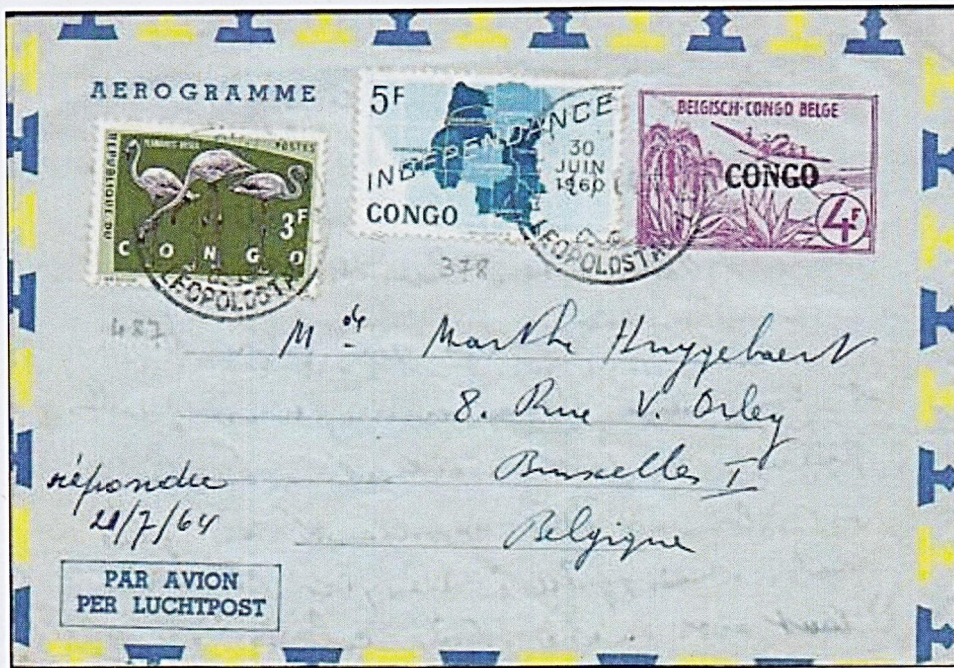 AEROGRAMME
REPUBLIQUE DU
POSTES
3F
CONGO
LEOPOLDSTA
5F
INDEPENDANCE
30
JUIN
1960
CONGO
LEOPOLDSTA
BELGISCH-CONGO BELGE
CONGO
4F
378
487
Marthe Huygebaert
8. Rue V. Orley
Bruxelles I
Belgique
répondu
21/7/64
PAR AVION
PER LUCHTPOST